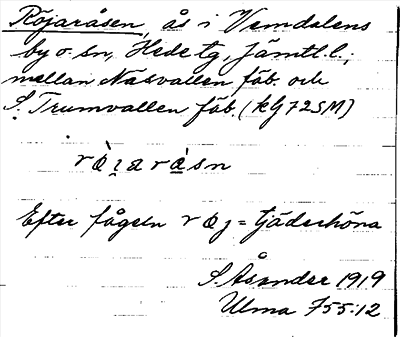 Röjaråsen, ås i Vemdalens
by o. sn, Hede tg, Jämtl. l.;
mellan Näsvallen fäb. och
S. Trumvallen fäb. (kG72SM)
rœ̀ɪarásn
Efter fågeln rœȷ = tjäderhöna
S. Åsander 1919
Ulma 755:12